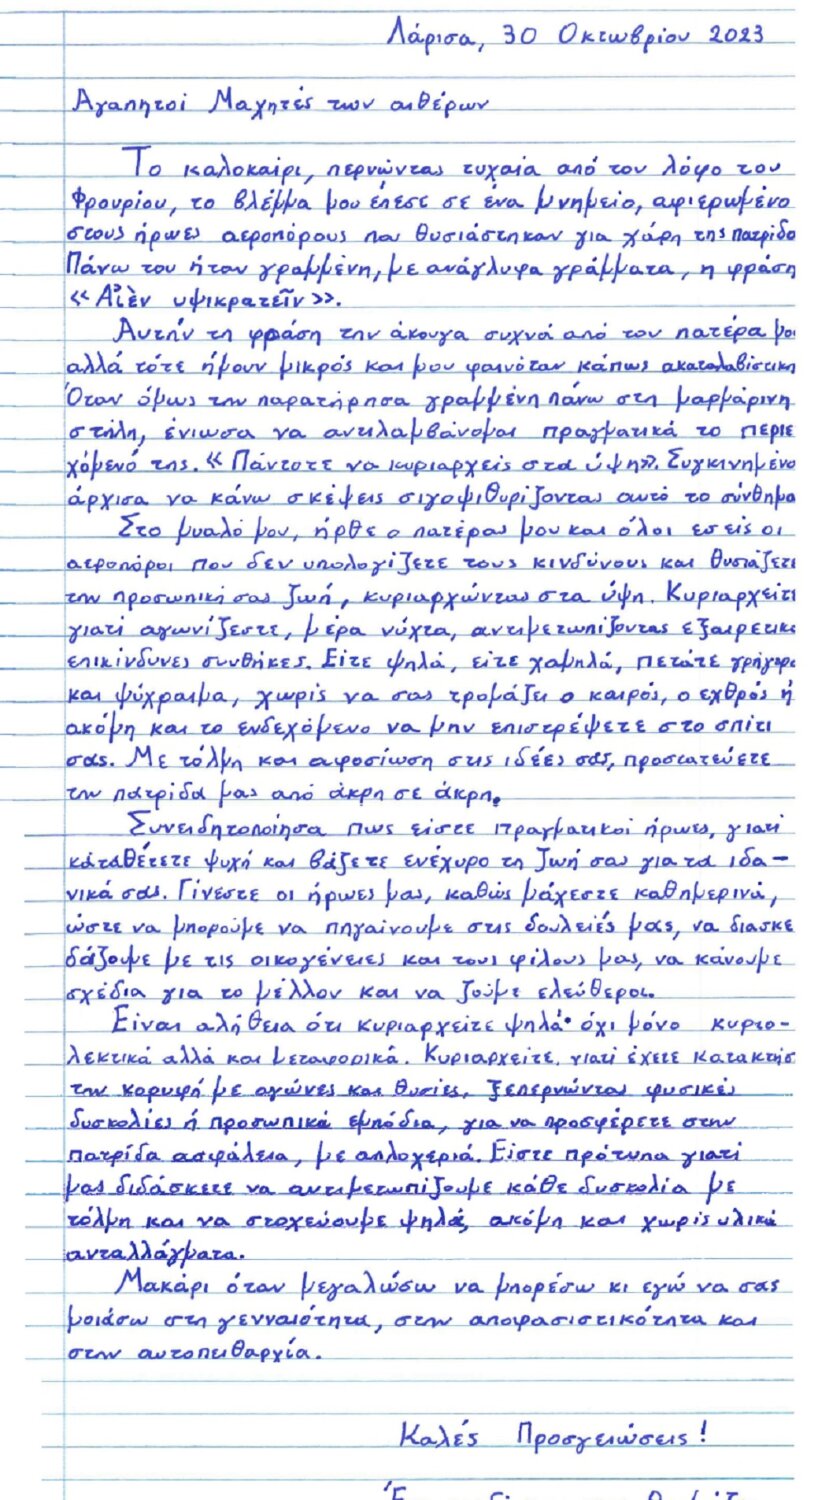 Λάρισα, 30 Οκτωβρίου 2023
Αγαπητοί Μαχητές των αιθέρων
Το καλοκαίρι, περνώντας τυχαία από τον λόφο του
Φρουρίου, το βλέμμα μου έπεσε σε ένα μνημείο, αφιερωμένο
στους ήρωες αεροπόρους που θυσιάστηκαν για χάρη της πατρίδα
Πάνω του ήταν γραμμένη, με ανάγλυφα γράμματα, η φράση
«Αἰὲν υψικρατεῖν».
Αυτήν τη φράση την άκουγα συχνά από τον πατέρα μο
αλλά τότε ήμουν μικρός και μου φαινόταν κάπως ακαταλαβίστικη
Όταν όμως την παρατήρησα γραμμένη πάνω στη μαρμάρινη
στήλη, ένιωσα να αντιλαμβάνομαι πραγματικά το περιε
χόμενό της. «Πάντοτε να κυριαρχείς στα ύψη». Συγκινημένο
άρχισα να κάνω σκέψεις σιγοψιθυρίζοντας αυτό το σύνθημα
Στο μυαλό μου, ήρθε ο πατέρας μου και όλοι εσείς οι
αεροπόροι που δεν υπολογίζετε τους κινδύνους και θυσιάζετε
την προσωπική σας ζωή, κυριαρχώντας στα ύψη. Κυριαρχείτε
γιατί αγωνίζεστε, μέρα νύχτα, αντιμετωπίζοντας εξαιρετικά
επικίνδυνες συνθήκες. Είτε ψηλά, είτε χαμηλά, πετάτε γρήγορα
και ψύχραιμα, χωρίς να σας τρομάζει ο καιρός, ο εχθρός ή
ακόμη και το ενδεχόμενο να μην επιστρέψετε στο σπίτι
σας. Με τόλμη και αφοσίωση στις ιδέες σας, προστατεύετε
την πατρίδα μας από άκρη σε άκρη.
Συνειδητοποίησα πως είστε πραγματικοί ήρωες, γιατί
καταθέτετε ψυχή και βάζετε ενέχυρο τη ζωή σας για τα ιδα-
νικά σας. Γίνεστε οι ήρωες μας, καθώς μάχεστε καθημερινά,
ώστε να μπορούμε να πηγαίνουμε στις δουλειές μας, να διασκε
δάζουμε με τις οικογένειες και τους φίλους μας, να κάνουμε
σχέδια για το μέλλον και να ζούμε ελεύθεροι.
Είναι αλήθεια ότι κυριαρχείτε ψηλά· όχι μόνο κυριο-
λεκτικά αλλά και μεταφορικά. Κυριαρχείτε, γιατί έχετε κατακτήσ
την κορυφή με αγώνες και θυσίες, ξεπερνώντας φυσικές
δυσκολίες ή προσωπικά εμπόδια, για να προσφέρετε στην
πατρίδα ασφάλεια, με απλοχεριά. Είστε πρότυπα γιατί
μας διδάσκετε να αντιμετωπίζουμε κάθε δυσκολία με
τόλμη και να στοχεύουμε ψηλά, ακόμη και χωρίς υλικά
ανταλλάγματα.
Μακάρι όταν μεγαλώσω να μπορέσω κι εγώ να σας
μοιάσω στη γενναιότητα, στην αποφασιστικότητα και
στην αυτοπειθαρχία.
Καλές Προσγειώσεις!